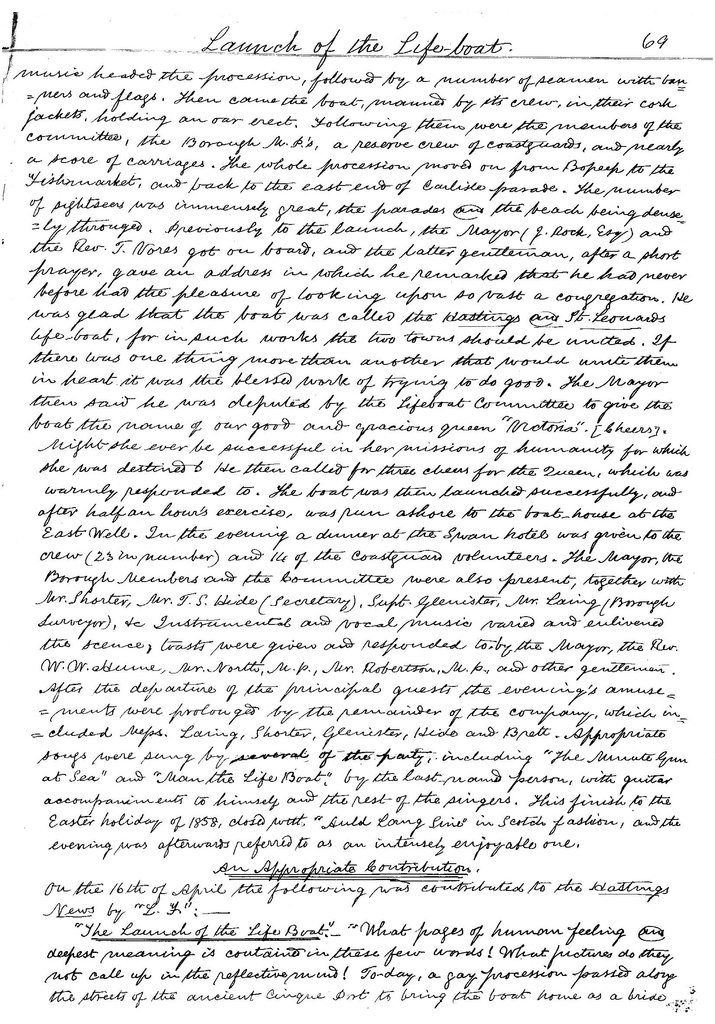 Launch of the Life-boat. 69
music headed the procession, followed by a number of seamen with ban=
=ners and flags. Then came the boat, manned by its crew, in their cork
jackets, holding an oar erect. Following them were the members of the
committee, the Borough M.P.'s, a reserve crew of coastguards, and nearly
a score of carriages. The whole procession moved on from Bopeep to the
Fishmarket, and back to the east end of Carlisle parade. The number
of sightseers was immensely great, the parades and the beach being dense=
=ly thronged. Previously to the launch, the Mayor (J. Rock, Esq) and
the Rev. T. Vores got on board, and the latter gentleman, after a short
prayer, gave an address in which he remarked that he had never
before had the pleasure of looking upon so vast a congregation. He
was glad that the boat was called the Hastings and St. Leonards
life-boat, for in such works the two towns should be united. If
there was one thing more than another that would unite them
in heart it was the blessed work of trying to do good. The Mayor
then said he was deputed by the Lifeboat Committee to give the
boat the name of our good and gracious queen "Victoria". [Cheers].
Might she ever be successful in her missions of humanity for which
she was destined! He then called for three cheers for the Queen, which was
warmly responded to. The boat was then launched successfully, and
after half an hour's exercise, was run ashore to the boat-house at the
East Well. In the evening a dinner at the Swan hotel was given to the
crew (23 in number) and 14 of the Coastguard volunteers. The Mayor, the
Borough Members and the Committee were also present, together with
Mr. Shorter, Mr. T. S. Hide (Secretary), Supt. Glenister, Mr. Laing (Borough
Surveyor), &c Instrumental and vocal music varied and enlivened
the scence; toasts were given and responded to by the Mayor, the Rev.
W. W. Hume, Mr. North, M.P., Mr. Robertson, M.P., and other gentlemen.
After the departure of the principal guests the evening's amuse=
=ments were prolonged by the remainder of the company, which in=
=cluded Messrs. Laing, Shorter, Glenister, Hide and Brett. Appropriate
songs were sung by several of the party, including "The Minute Gun
at Sea" and "Man the Life Boat", by the last-named person, with guitar
accompaniments to himself and the rest of the singers. This finish to the
Easter holiday of 1858, closed with "Auld Lang Sine" in Scotch fashion, and the
evening was afterwards referred to as an intensely enjoyable one.
An Appropriate Contribution.
On the 16th of April the following was contributed to the Hastings
News by "L. F.":—
"The Launch of the Life Boat".— "What pages of human feeling and
deepest meaning is contained in these few words! What pictures do they
not call up in the reflective mind! To-day, a gay procession passed along
the streets of the ancient Cinque Port to bring the boat home as a bride